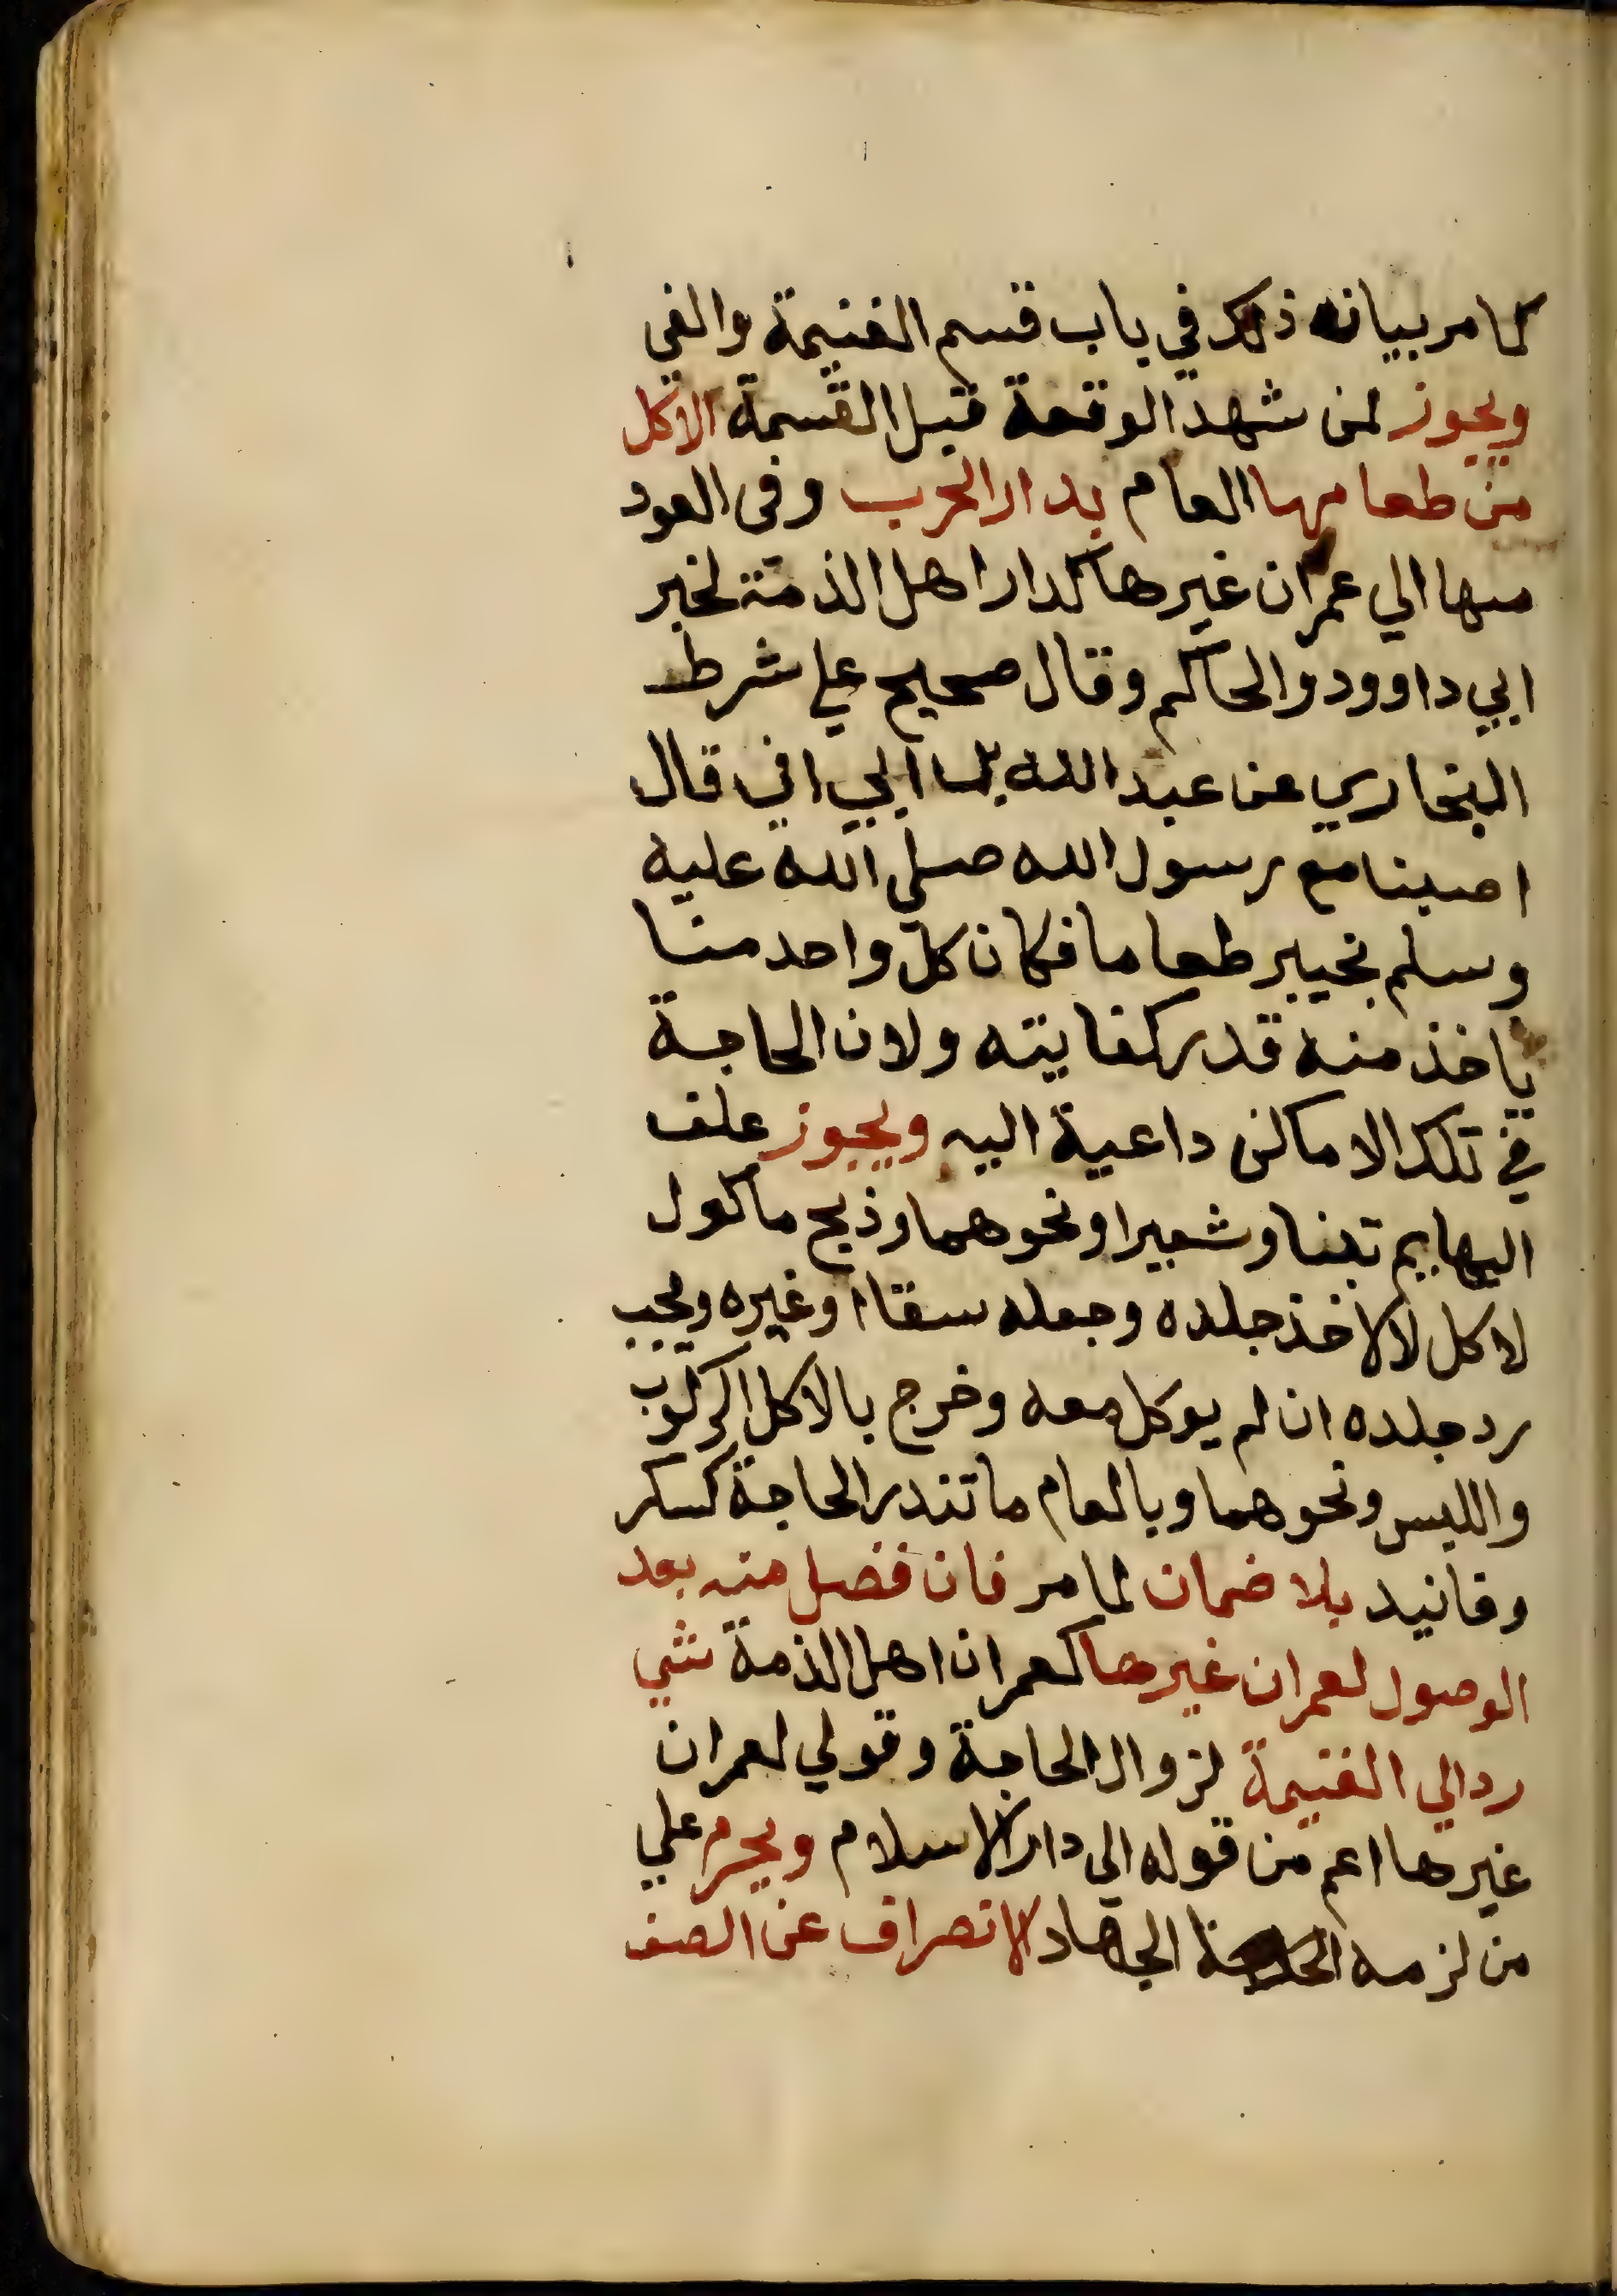 كما مر بيانه ذلك في باب قسم الغنيمة والفي
ويجوز لمن شهد الوقعة قبل القسمة الاكل
من طعامها العام بدار الحرب وفي العود
منها الي عمران غيرها كدار اهل الذمة لخبر
ابي داوود والحاكم وقال صحيح علي شرط
البخاري عن عبد الله ابي افي قال
اصبنا مع رسول الله صلي الله عليه
وسلم بخيبر طعاما فكان كل واحد منا
ياخذ منه قدر كفايته ولان الحاجة
في تلك الاماكن داعية اليه ويجوز علف
البهايم تبنا وشعيرا ونحوهما وذبح ماكول
لاكل لا لاخذ جلده وجعله سقاا وغيره ويجب
رد جلده ان لم يوكل معه وخرج بالاكل الركوب
واللبس ونحوهما وبالعام ما تندر الحاجة كسكر
وفانيد بلا ضمان لما مر فان فضل منه بعد
الوصول لعمران غيرها كعمران اهل الذمة شي
رد الي الغنيمة لزوال الحاجة وقولي لعمران
غيرها اعم من قوله الي دار الاسلام ويحرم علي
من لزمه الجهاد الانصراف عن الصف